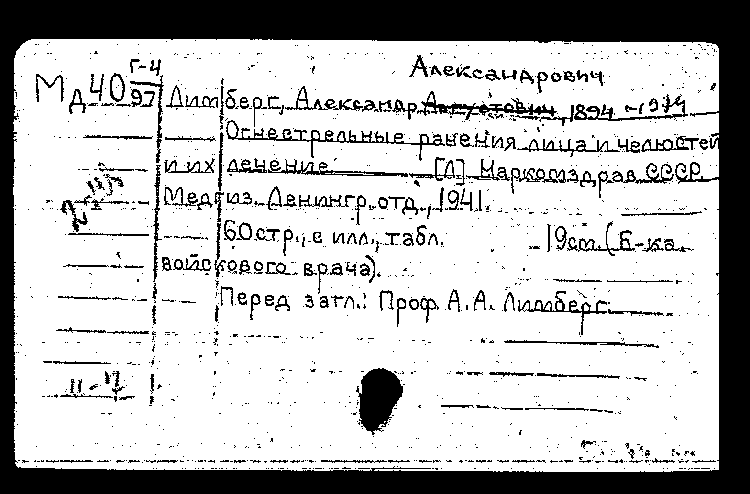 Александрович
Г-4
Мд 40
97
Лимберг, Александр Августович, 1894 - 1974
Огнестрельные ранения лица и челюстей
и их лечение. [Л] Наркомздрав СССР
Медгиз. Ленингр. отд., 1941.
60 стр., с илл., табл. 19 см. (Б-ка
войскового врача).
Перед загл.: Проф. А. А. Лимберг.
11-17